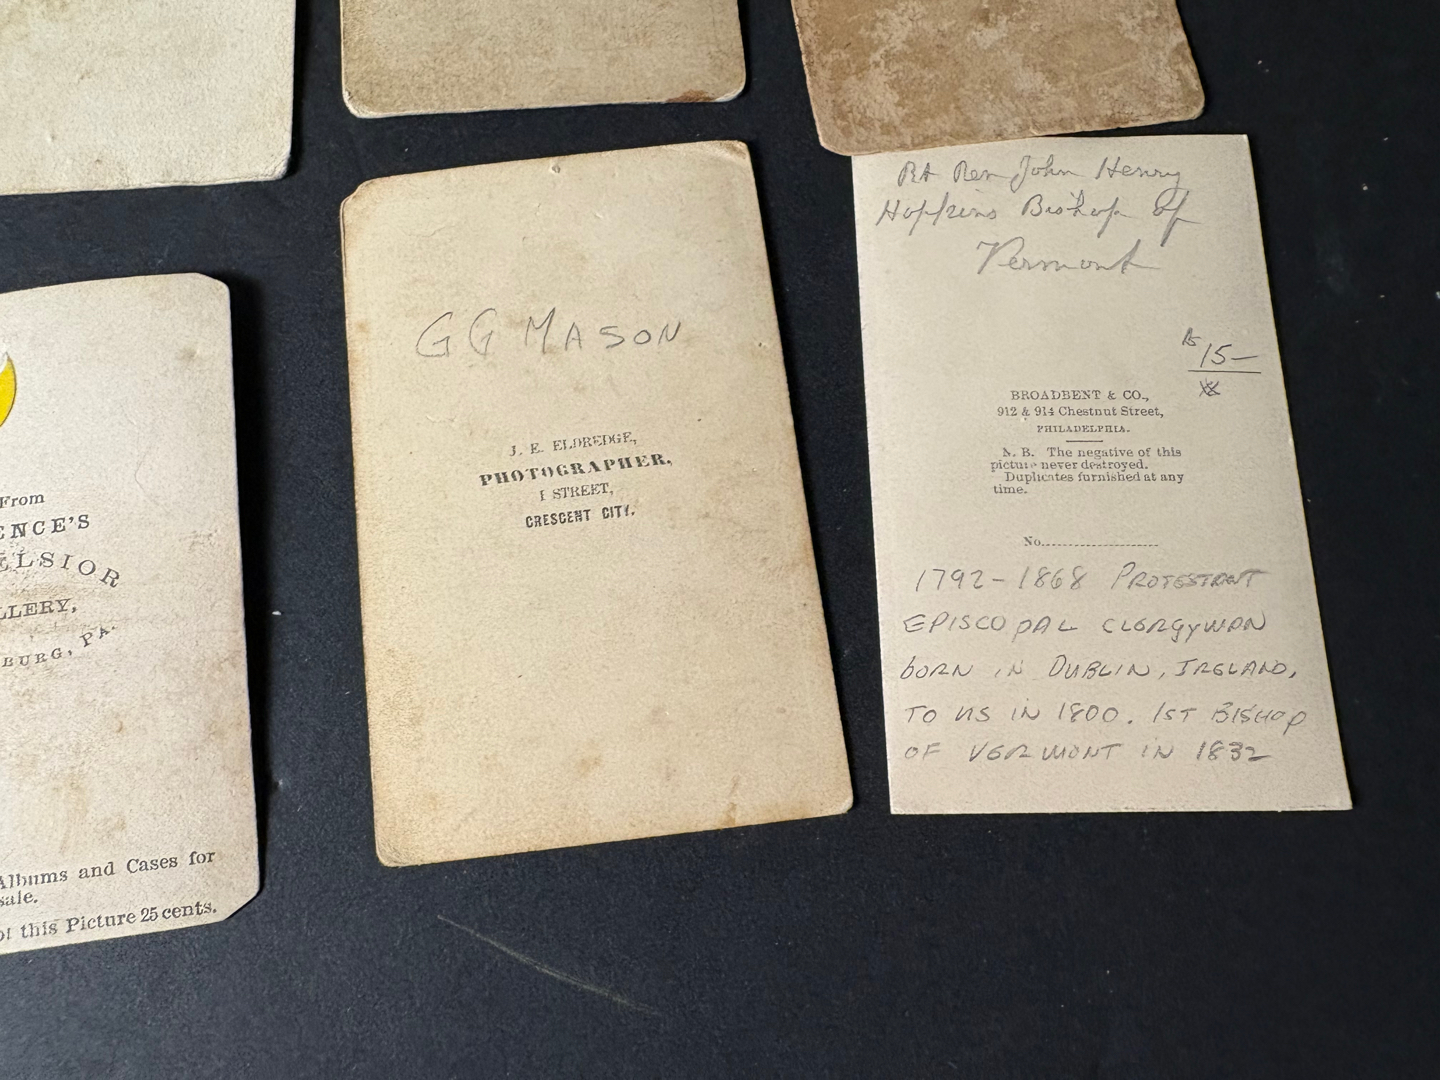 From
ENCE'S
ELSIOR
LLERY,
BURG, PA.
Albums and Cases for
sale.
of this Picture 25 cents.
GG MASON
J. E. ELDREDGE,
PHOTOGRAPHER,
I STREET,
CRESCENT CITY.
Rt Rev John Henry
Hopkins Bishop of
Vermont
15-
BROADBENT & CO.,
912 & 914 Chestnut Street,
PHILADELPHIA.
N. B. The negative of this
picture never destroyed.
Duplicates furnished at any
time.
No.
1792-1868 PROTESTANT
EPISCOPAL CLERGYMAN
BORN IN DUBLIN, IRELAND,
TO US IN 1800. 1ST BISHOP
OF VERMONT IN 1832